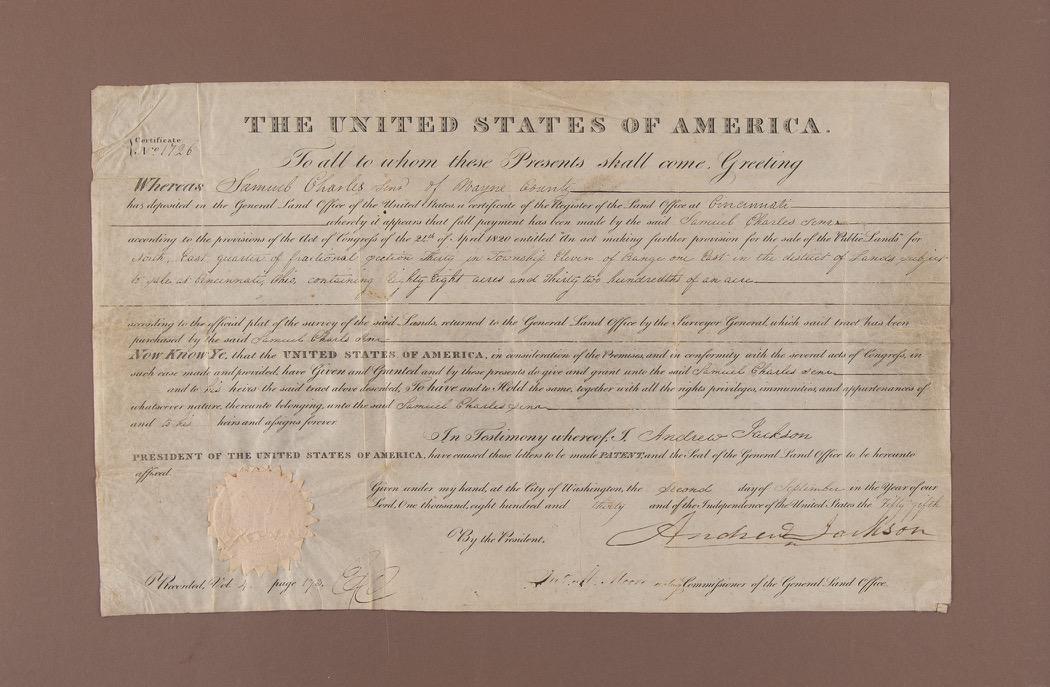 THE UNITED STATES OF AMERICA.
Certificate
No. 1726
To all to whom these Presents shall come, Greeting
Whereas Samuel Charles Senr of Wayne County
has deposited in the General Land Office of the United States, a certificate of the Register of the Land Office at Cincinnati
whereby it appears that full payment has been made by the said Samuel Charles Senr
according to the provisions of the Act of Congress of the 24th of April 1820 entitled "An act making further provision for the sale of the Public Lands" for
North, East quarter of fractional section Thirty in Township Eleven of Range one East in the district of Lands subject
to sale at Cincinnati, Ohio, containing Eighty Eight acres and Thirty two hundredths of an acre
according to the official plat of the survey of the said Lands, returned to the General Land Office by the Surveyor General, which said tract has been
purchased by the said Samuel Charls Senr
Now Know Ye, that the UNITED STATES OF AMERICA, in consideration of the Premises, and in conformity with the several acts of Congress, in
such case made and provided, have Given and Granted and by these presents do give and grant unto the said Samuel Charles Senr
and to his heirs the said tract above described; To have and to Hold the same, together with all the rights privileges, immunities, and appurtenances of
whatsoever nature, thereunto belonging, unto the said Samuel Charles Senr
and to his heirs and assigns forever.
In Testimony whereof, I, Andrew Jackson
PRESIDENT OF THE UNITED STATES OF AMERICA, have caused these letters to be made PATENT, and the Seal of the General Land Office to be hereunto
affixed.
Given under my hand, at the City of Washington, the Second day of September in the Year of our
Lord, One thousand, eight hundred and thirty and of the Independence of the United States the Fifty fifth
By the President, Andrew Jackson
Recorded, Vol. 4 page 173
Jno. M. Moore acting Commissioner of the General Land Office.